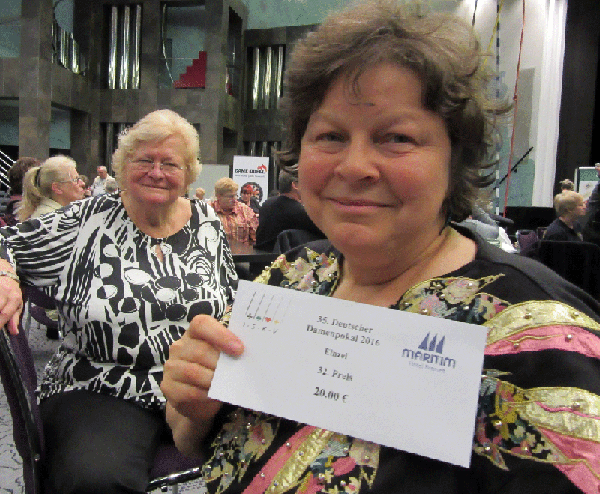 35. Deutscher
Damenpokal 2016
Einzel
32. Preis
20,00 €
MARITIM